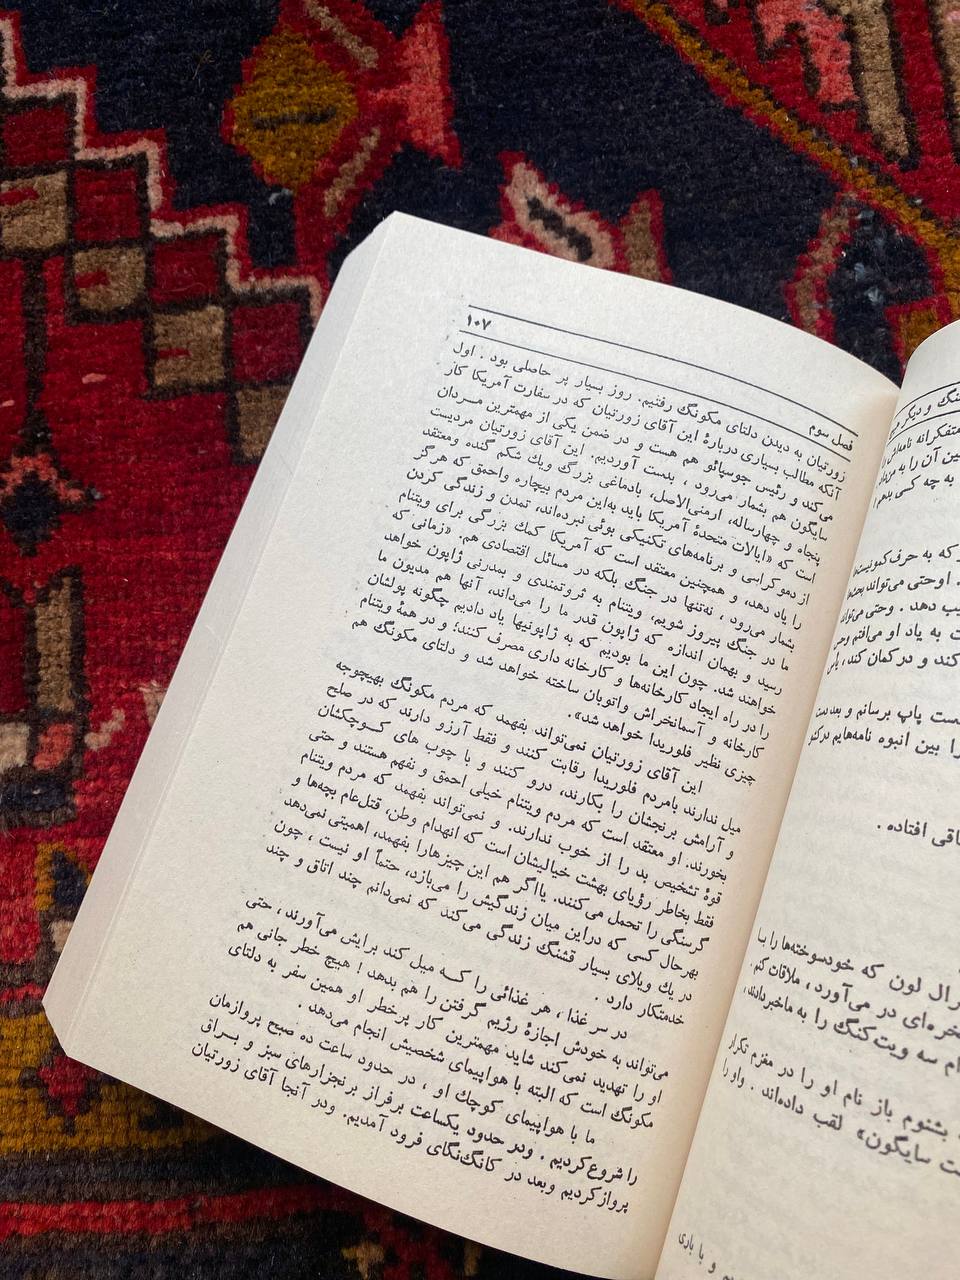 نگ و دیگر
متفکرانه نامه‌اش
ین آن را به مردی
به چه کسی بدهم
که به حرف کمونیست‌ها
. اوحتی می‌تواند
یب دهد . وحتی می‌تواند
ت به یاد او می‌افتم وحتی
کند و در کمان کند ،
ست پاپ برسانم و بعد دست
را بین انبوه نامه‌هایم
اقی افتاده .
رال لون که خودسوخته‌ها را با
خره‌ای در می‌آورد ، ملاقات کنم .
ام سه ویت‌کنگ را به ما خبر دادند ،
بشنوم باز نام او را در مغزم تکرار
ت سایگون» لقب داده‌اند . واو را
م و با باری
فصل سوم ۱۰۷
زورتیان به دیدن دلتای مکونگ رفتیم. روز بسیار پر حاصلی بود . اول
آنکه مطالب بسیاری دربارهٔ این آقای زورتیان که در سفارت آمریکا کار
می‌کند و رئیس جوسپائو هم هست و در ضمن یکی از مهمترین مردان
سایگون هم بشمار می‌رود ، بدست آوردیم. این آقای زورتیان مردیست
پنجاه و چهارساله، ارمنی‌الاصل، بادماغی بزرگ ویك شکم گنده ومعتقد
است که «ایالات متحدهٔ آمریکا باید به‌این مردم بیچاره واحمق که هرگز
از دموکراسی و برنامه‌های تکنیکی بوئی نبرده‌اند، تمدن و زندگی کردن
را یاد دهد، و همچنین معتقد است که آمریکا کمك بزرگی برای ویتنام
بشمار می‌رود ، نه‌تنها در جنگ بلکه در مسائل اقتصادی هم. «زمانی که
ما در جنگ پیروز شویم، ویتنام به ثروتمندی و بمدرنی ژاپون خواهد
رسید و بهمان اندازه که ژاپون قدر ما را می‌داند، آنها هم مدیون ما
خواهند شد. چون این ما بودیم که به ژاپونیها یاد دادیم چگونه پولشان
را در راه ایجاد کارخانه‌ها و کارخانه داری مصرف کنند؛ و در همهٔ ویتنام
کارخانه و آسمانخراش واتوبان ساخته خواهد شد و دلتای مکونگ هم
چیزی نظیر فلوریدا خواهد شد».
این آقای زورتیان نمی‌تواند بفهمد که مردم مکونگ بهیچوجه
میل ندارند بامردم فلوریدا رقابت کنند و فقط آرزو دارند که در صلح
و آرامش برنجشان را بکارند، درو کنند و با چوب های کوچکشان
بخورند. او معتقد است که مردم ویتنام خیلی احمق و نفهم هستند و حتی
قوهٔ تشخیص بد را از خوب ندارند. و نمی‌تواند بفهمد که مردم ویتنام
فقط بخاطر رؤیای بهشت خیالیشان است که انهدام وطن، قتل‌عام بچه‌ها و
گرسنگی را تحمل می‌کنند. یااگر هم این چیزهارا بفهمد، اهمیتی نمی‌دهد
بهرحال کسی که دراین میان زندگیش را می‌بازد، حتماً او نیست ، چون
در یك ویلای بسیار قشنگ زندگی می‌کند که نمی‌دانم چند اتاق و چند
خدمتکار دارد .
در سر غذا ، هر غذائی را که میل کند برایش می‌آورند ، حتی
می‌تواند به خودش اجازهٔ رژیم گرفتن را هم بدهد ! هیچ خطر جانی هم
او را تهدید نمی‌کند شاید مهمترین کار پرخطر او همین سفر به دلتای
مکونگ است که البته با هواپیمای شخصیش انجام می‌دهد .
ما با هواپیمای کوچك او ، در حدود ساعت ده صبح پروازمان
را شروع‌کردیم . ودر حدود یکساعت برفراز برنجزارهای سبز و براق
پروازکردیم وبعد در کانگ‌نگای فرود آمدیم. ودر آنجا آقای زورتیان